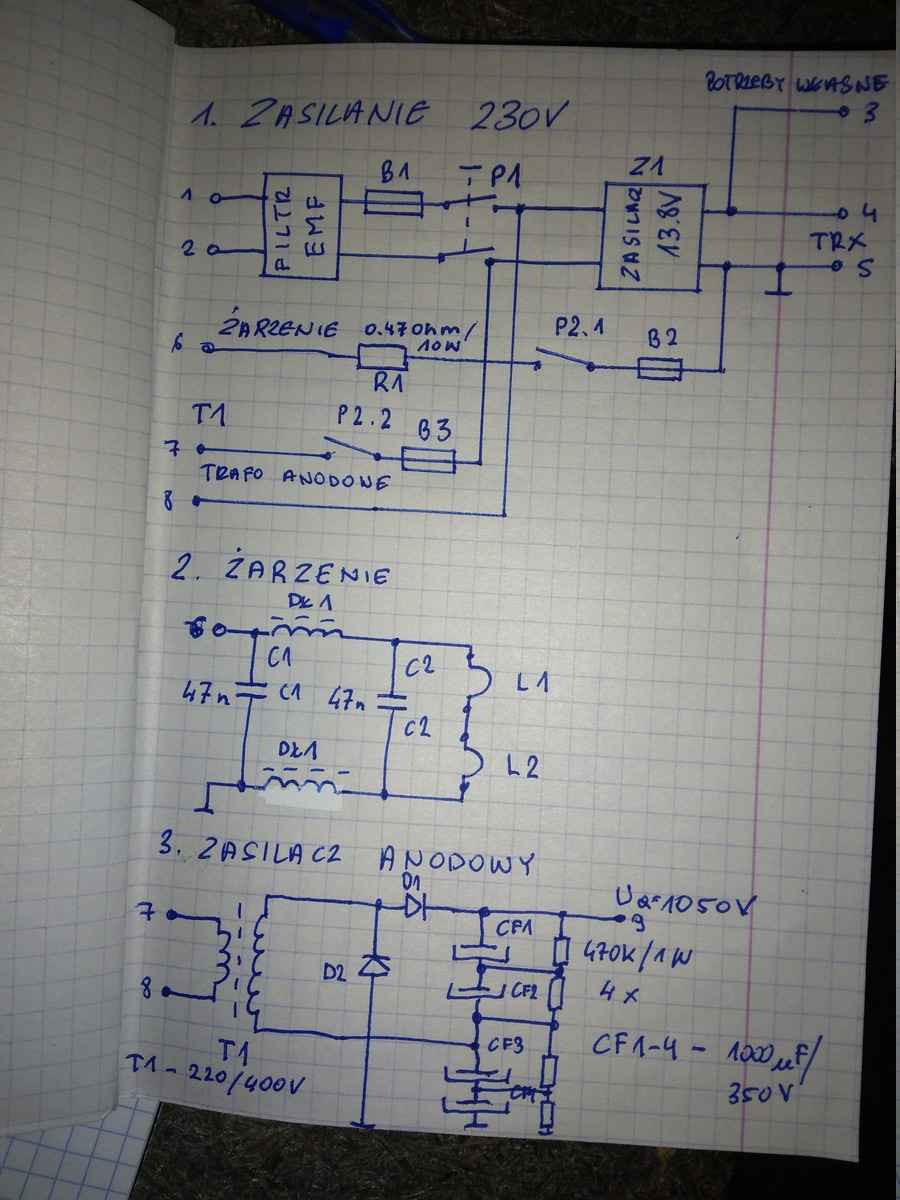 POTRZEBY WŁASNE
1. ZASILANIE 230V
3
B1
P1
Z1
1
FILTR EMF
ZASILACZ 13.8V
4
2
TRX
5
ŻARZENIE
0.47 Ohm/10W
P2.1
B2
6
R1
T1
P2.2
B3
7
TRAFO ANODOWE
8
2. ŻARZENIE
Dł1
6
C1
C2
L1
47n
C1
47n
C2
Dł1
L2
3. ZASILACZ ANODOWY
D1
Ua=1050V
7
9
CF1
470K/1W
D2
8
CF2
4x
CF3
CF1-4 - 1000µF/
T1
350V
T1 - 220/400V
CF4